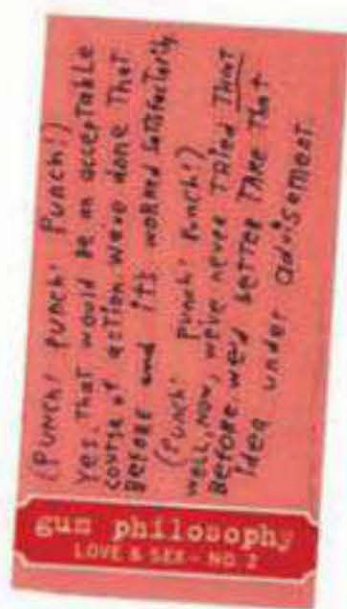 (PUNCH! PUNCH! PUNCH!)
Yes. That would be an acceptable
course of action. We've done that
before and it's worked satisfactorily.
(PUNCH! PUNCH! PUNCH!)
Well, now, we've never tried THAT
before. We'd better take that
idea under advisement.
gum philosophy
LOVE & SEX - NO. 2